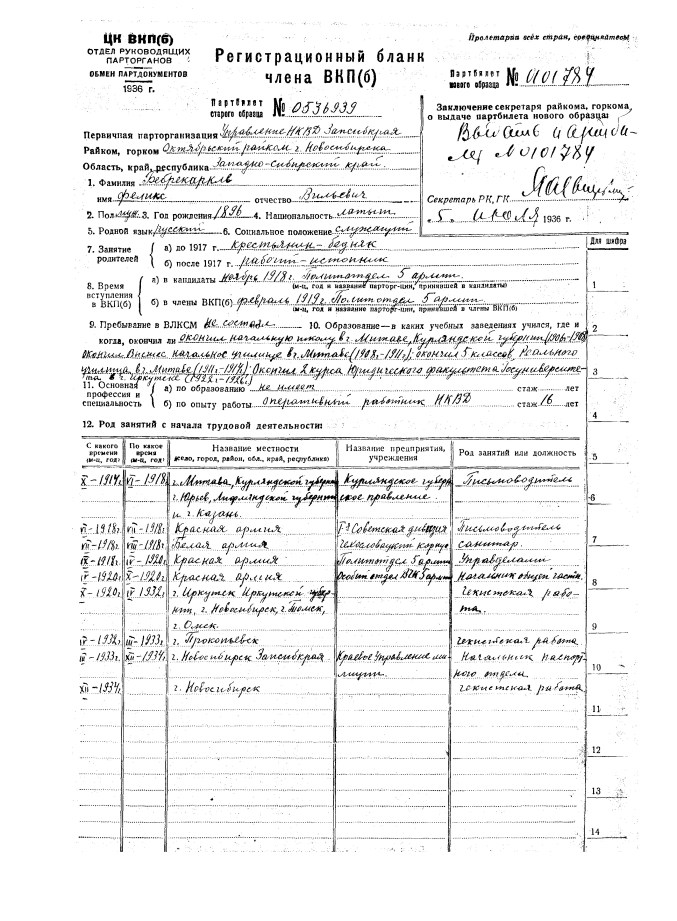 ЦК ВКП(б)
ОТДЕЛ РУКОВОДЯЩИХ
ПАРТОРГАНОВ
ОБМЕН ПАРТДОКУМЕНТОВ
1936 г.
Пролетарии всех стран, соединяйтесь
Регистрационный бланк
члена ВКП(б)
Партбилет
нового образца № 0101784
Партбилет
старого образца № 0536939
Заключение секретаря райкома, горкома,
о выдаче партбилета нового образца:
Выдать
№ 0101784
Секретарь РК, ГК
„5" июля 1936 г.
Первичная парторганизация Управление НКВД Запсибкрая
Райком, горком Октябрьский райком г. Новосибирска
Область, край, республика Западно-Сибирский край.
1. Фамилия Феврекаркль
имя Феликс отчество Вильевич
2. Пол муж. 3. Год рождения 1896 4. Национальность латыш
5. Родной язык русский 6. Социальное положение служащий
7. Занятие родителей
а) до 1917 г. крестьянин-бедняк
б) после 1917 г. рабочий-истопник
8. Время вступления в ВКП(б)
а) в кандидаты ноябрь 1918 г. Политотдел 5 армии.
(м-ц, год и название парторг-ции, принявшей в кандидаты)
б) в члены ВКП(б) февраль 1919 г. Политотдел 5 армии
(м-ц, год и название парторг-ции, принявшей в члены ВКП(б)
9. Пребывание в ВЛКСМ не состоял 10. Образование—в каких учебных заведениях учился, где и
когда, окончил ли окончил начальную школу в г. Митаве, Курляндской губернии (1906-1908)
окончил Высшее начальное училище в г. Митаве (1908г.-1911г.); окончил 5 классов, Реального
училища в г. Митаве (1911-1914); Окончил 2 курса Юридического факультета Госуниверсите-
та в г. Иркутске (1922г.-1926г.)
11. Основная профессия и специальность
а) по образованию не имеет стаж лет
б) по опыту работы оперативный работник НКВД стаж 16 лет
12. Род занятий с начала трудовой деятельности:
Для шифра
1
2
3
4
5
6
7
8
9
10
11
12
13
14
С какого времени (м-ц, год) По какое время (м-ц, год) Название местности (село, город, район, обл., край, республика) Название предприятия, учреждения Род занятий или должность
X-1914г. VI-1918 г. Митава, Курляндской губернии Курляндское губерн- Письмоводитель
г. Юрьев, Лифляндской губернии ское правление
и г. Казань.
VI-1918г. VII-1918г. Красная армия Советская дивизия Письмоводитель
VII-1918г. VIII-1918г. Белая армия Чехословацкий корпус санитар.
IX-1918г. IV-1920г. Красная армия Политотдел 5 армии Управделами
IV-1920г. X-1920г. Красная армия Особый отдел ВЧК 5 армии Начальник общей части.
X-1920г. IV 1932г. г. Иркутск Иркутской губер- Чекистская рабо-
нии, г. Новосибирск, г. Томск, та.
г. Омск.
IV-1932г. III-1933г. г. Прокопьевск чекистская работа
III-1933г. XII-1934г. г. Новосибирск Запсибкрая Краевое Управление ми- Начальник паспорт-
лиции. ного отдела
XII-1934г. г. Новосибирск чекистская работа